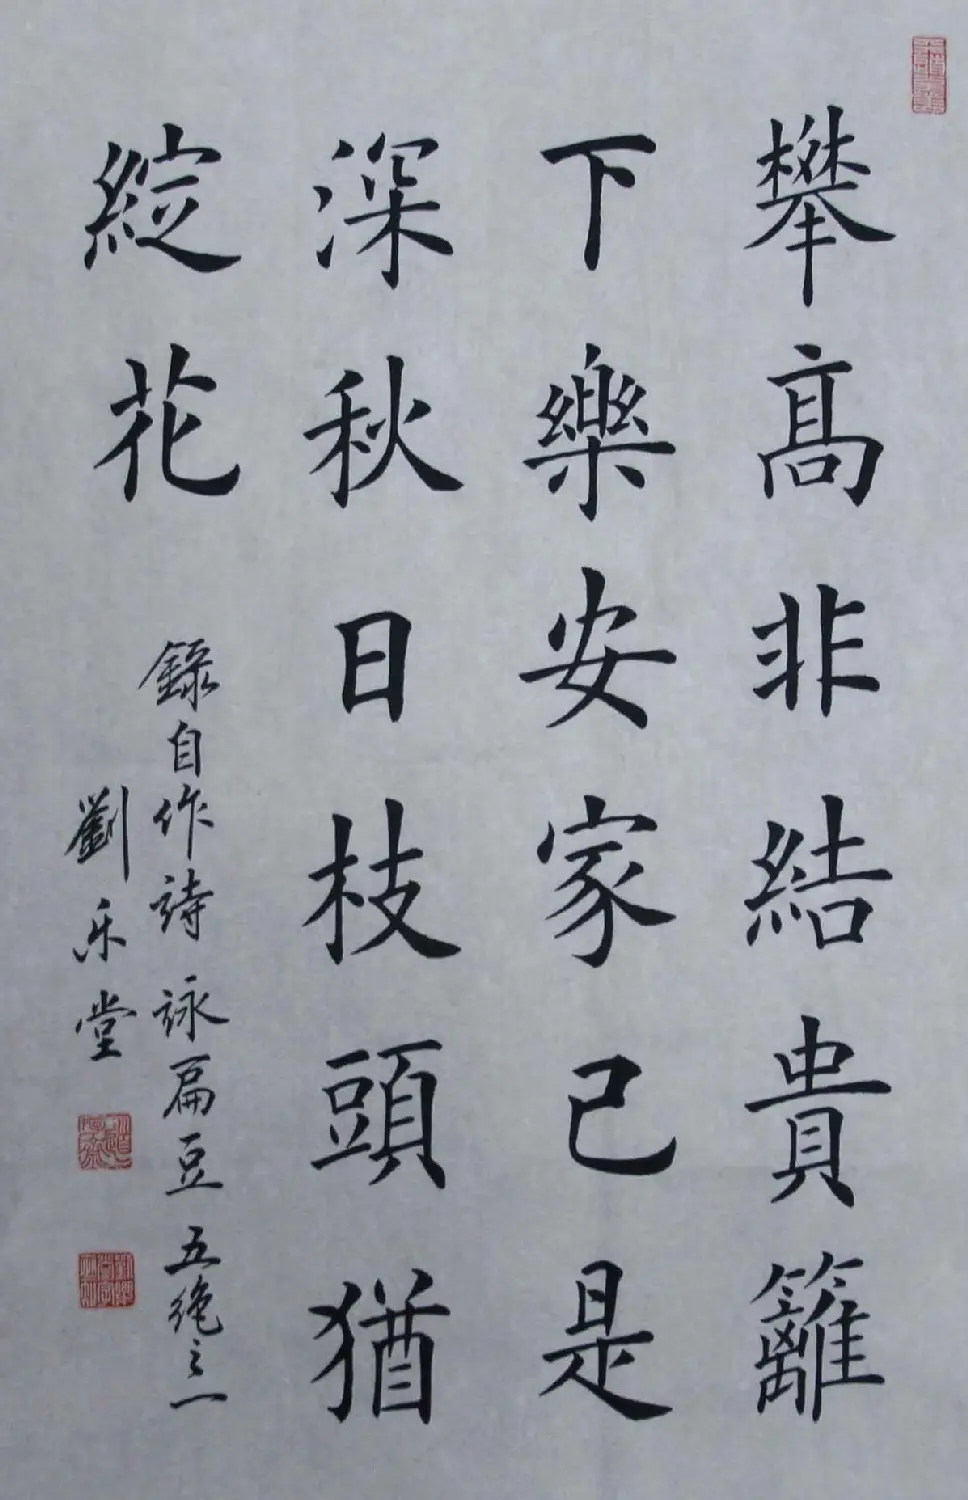 攀高非結貴籬
下樂安家已是
深秋日枝頭猶
綻花
錄自作詩詠扁豆五绝之一
劉乐堂